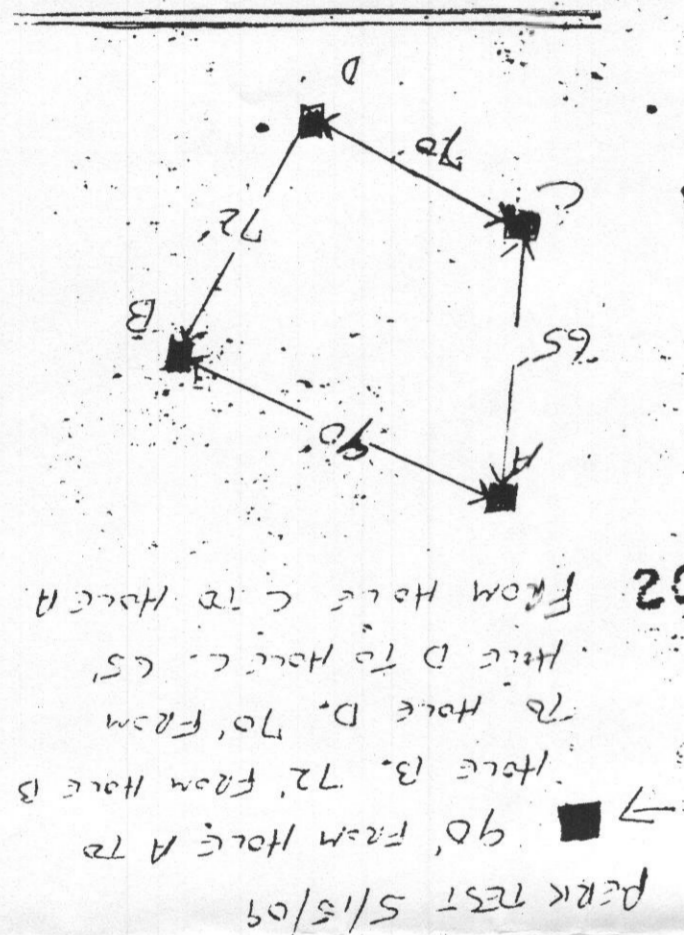 PERK TEST 5/15/09
90' FROM HOLE A TO
HOLE B. 72' FROM HOLE B
TO HOLE D. 70' FROM
HOLE D TO HOLE C. 65'
FROM HOLE C TO HOLE A
A
90
65
B
72'
C
70
D